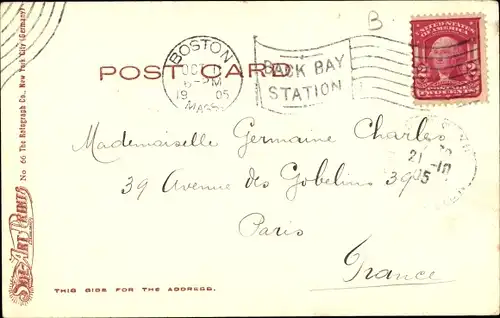 B
BOSTON
OCT 1
6-PM
1905
MASS.
BACK BAY
STATION
UNITED STATES
OF AMERICA
TWO CENTS
POST CARD
Mademoiselle Germaine Charles
39 Avenue des Gobelins 39
Paris
France
21
05
THIS SIDE FOR THE ADDRESS.
No 66 The Rotograph Co., New York City (Germany)
SOL-ART PRINTS